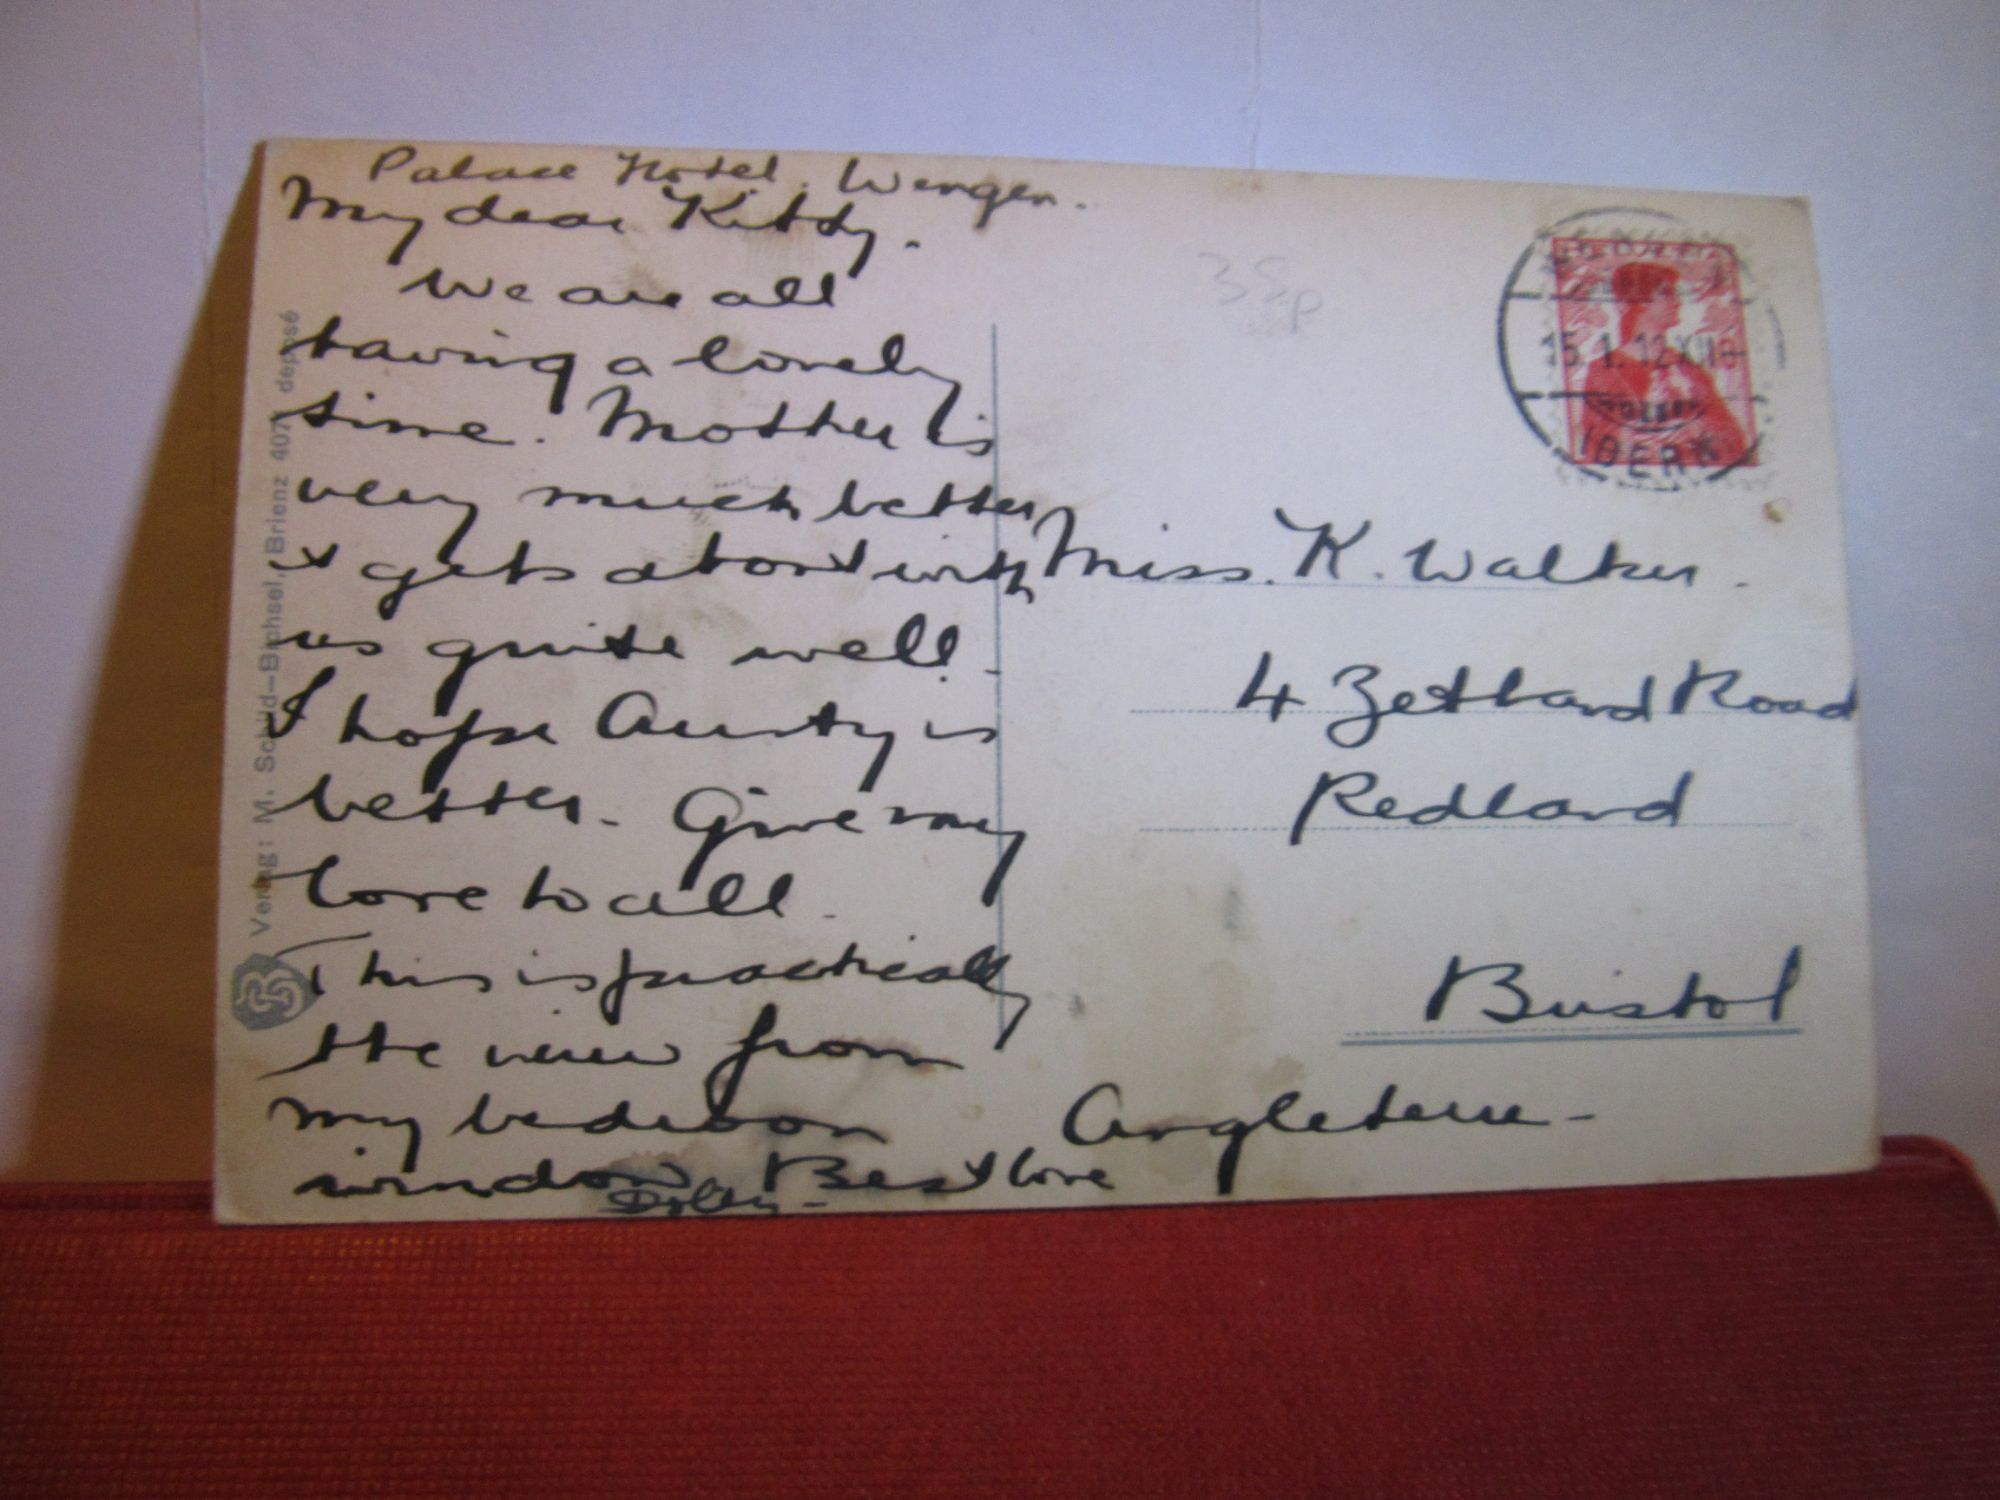 Palace Hotel. Wengen.
My dear Kitty.
We are all
having a lovely
time. Mother is
very much better
& gets about with
us quite well.
I hope Aunty is
better. Give my
love to all.
This is practically
the view from
my bedroom
window. Best love
Dolly.
35p
5.1.12.XII
(BERN)
Miss. K. Walker.
4 Zetland Road
Redland
Bristol
Angleterre
Verlag: M. Schild-Bichsel, Brienz 407 deposé